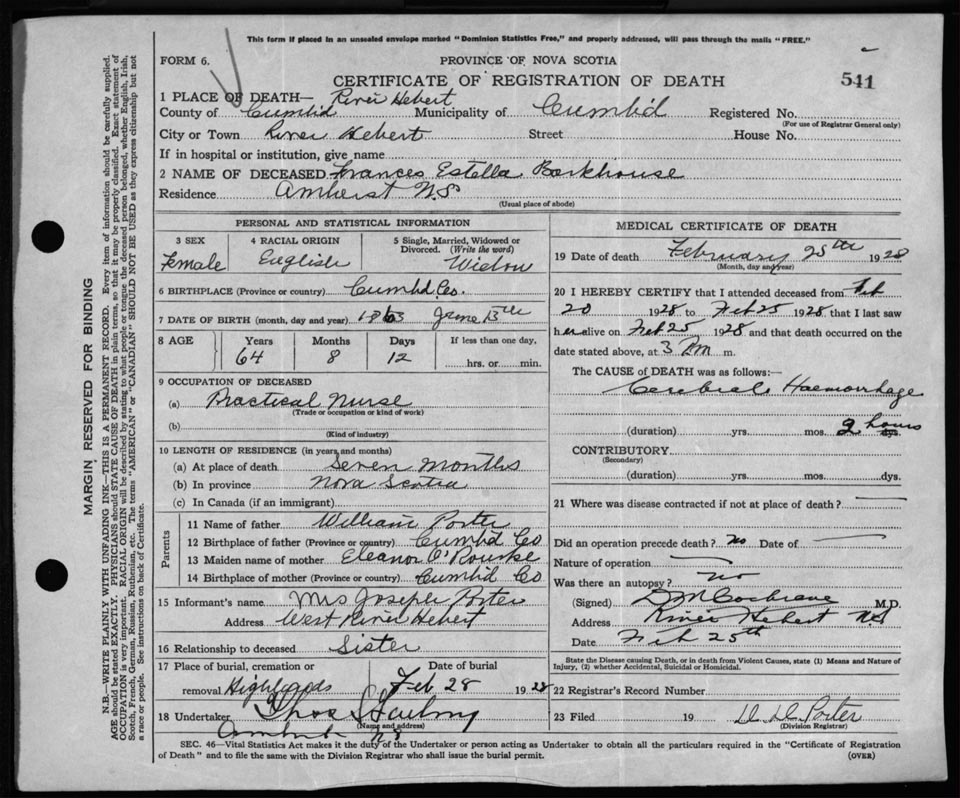 This form if placed in an unsealed envelope marked "Dominion Statistics Free," and properly addressed, will pass through the mails "FREE."
FORM 6. PROVINCE OF NOVA SCOTIA
CERTIFICATE OF REGISTRATION OF DEATH 541
1 PLACE OF DEATH— River Hebert
County of Cumb'd Municipality of Cumb'd Registered No.
(For use of Registrar General only)
City or Town River Hebert Street House No.
If in hospital or institution, give name
2 NAME OF DECEASED Frances Estella Barkhouse
Residence Amherst N.S
(Usual place of abode)
PERSONAL AND STATISTICAL INFORMATION
3 SEX 4 RACIAL ORIGIN 5 Single, Married, Widowed or Divorced. (Write the word)
Female English Widow
6 BIRTHPLACE (Province or country) Cumb'd Co.
7 DATE OF BIRTH (month, day and year) 1863 June 13th
8 AGE Years Months Days If less than one day,
64 8 12 hrs. or min.
9 OCCUPATION OF DECEASED
(a) Practical Nurse
(Trade or occupation or kind of work)
(b)
(Kind of industry)
10 LENGTH OF RESIDENCE (in years and months)
(a) At place of death Seven Months
(b) In province Nova Scotia
(c) In Canada (if an immigrant)
Parents
11 Name of father William Porter
12 Birthplace of father (Province or country) Cumb'd Co
13 Maiden name of mother Eleanor O'Rourke
14 Birthplace of mother (Province or country) Cumb'd Co
15 Informant's name Mrs Joseph Porter
Address West River Hebert
16 Relationship to deceased Sister
17 Place of burial, cremation or removal Date of burial
Feb 28 1928
18 Undertaker Thos
(Name and address)
NS
MEDICAL CERTIFICATE OF DEATH
19 Date of death February 25th 1928
(Month, day and year)
20 I HEREBY CERTIFY that I attended deceased from Feb
20 1928 to Feb 25 1928, that I last saw
h er alive on Feb 25 1928 and that death occurred on
date stated above, at 3 PM m.
The CAUSE of DEATH was as follows:—
Cerebral Haemorrhage
(duration) yrs. mos. 2 hours
CONTRIBUTORY
(Secondary)
(duration) yrs. mos. dys.
21 Where was disease contracted if not at place of death?
Did an operation precede death? No Date of
Nature of operation
Was there an autopsy? no
(Signed) D M Cochrane M.D.
Address River Hebert N.S
Date Feb 25th
State the Disease causing Death, or in death from Violent Causes, state (1) Means and Nature of
Injury, (2) whether Accidental, Suicidal or Homicidal.
22 Registrar's Record Number
23 Filed 19 D. D. Porter
(Division Registrar)
SEC. 46—Vital Statistics Act makes it the duty of the Undertaker or person acting as Undertaker to obtain all the particulars required in the "Certificate of Registration
of Death" and to file the same with the Division Registrar who shall issue the burial permit. (OVER)
MARGIN, RESERVED FOR BINDING
N.B.—WRITE PLAINLY WITH UNFADING INK—THIS IS A PERMANENT RECORD. Every item of information should be carefully supplied.
AGE should be stated EXACTLY. PHYSICIANS should STATE CAUSE OF DEATH in plain terms, so that it may be properly classified. Exact statement of
OCCUPATION is very important. RACIAL ORIGIN will be described by stating to what people or tongue the deceased person belonged, whether English, Irish,
Scotch, French, German, Russian, Ruthenian, etc. The terms "AMERICAN" or "CANADIAN" SHOULD NOT BE USED as they express citizenship but not
a race or people. See instructions on back of Certificate.